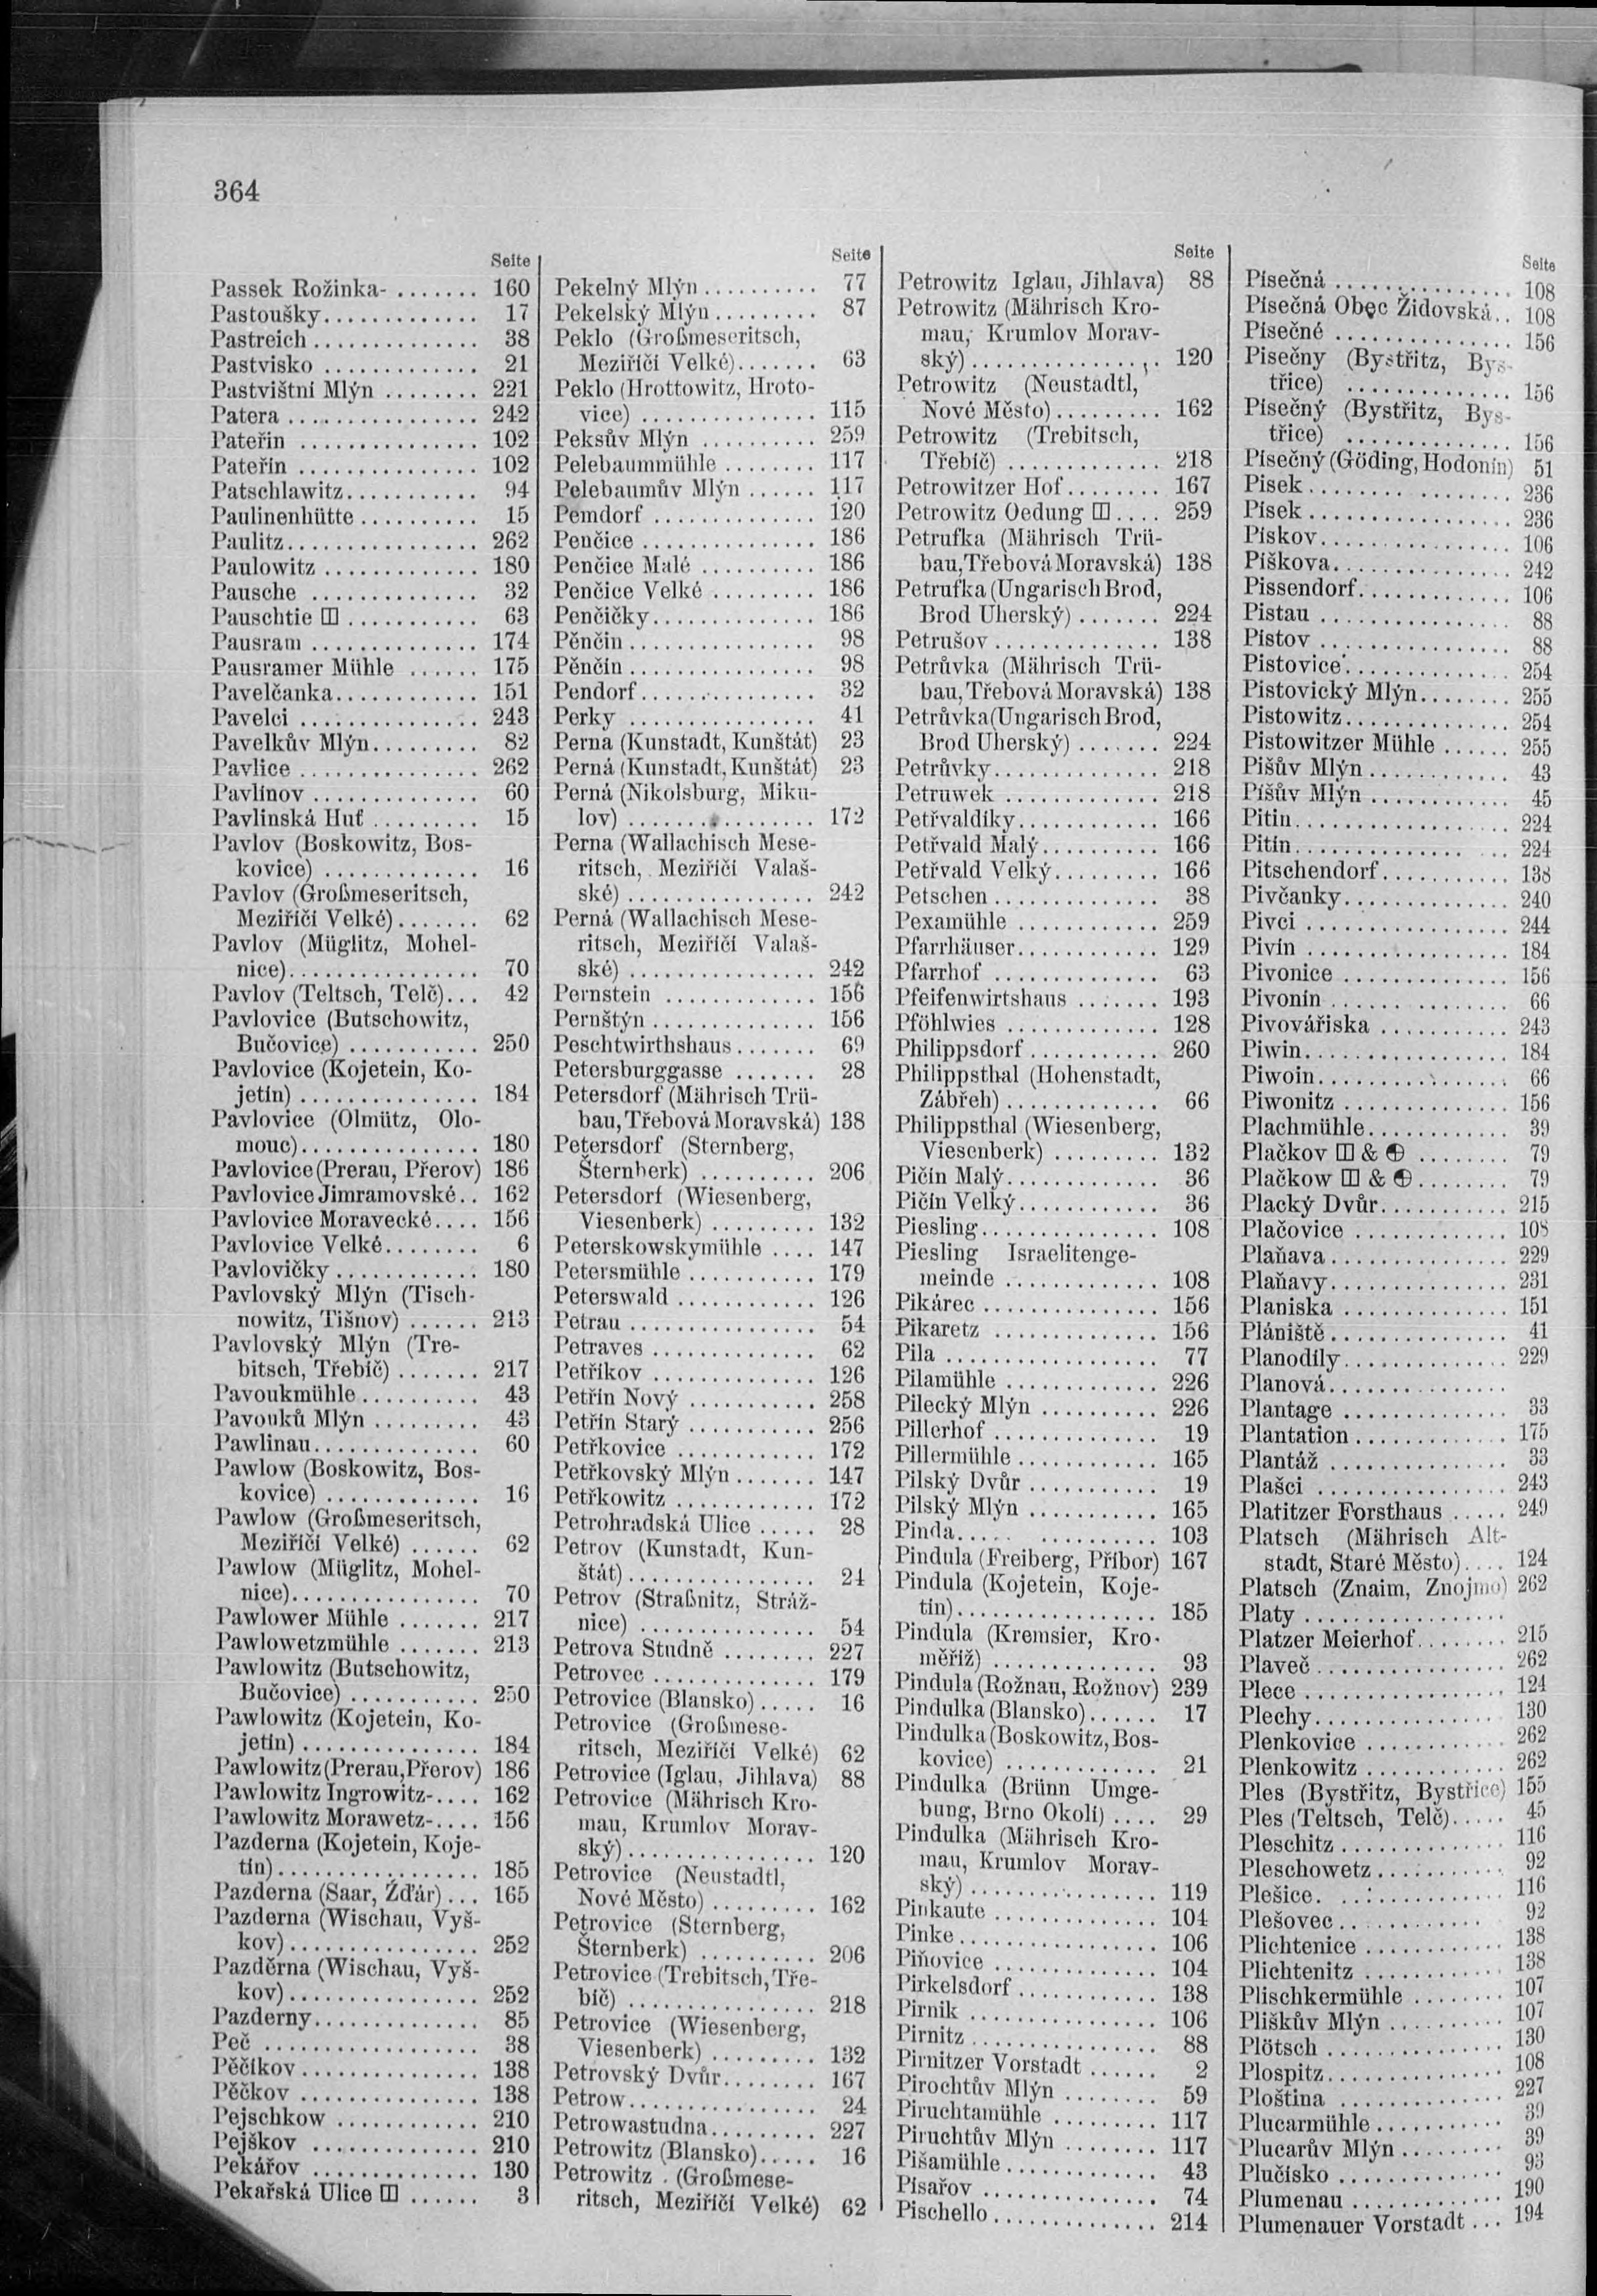 364
Seite
Passek Rožinka- ........ 160
Pastoušky............. 17
Pastreich .............. 38
Pastvisko ............. 21
Pastvištní Mlýn ........ 221
Patera ................ 242
Pateřin ............... 102
Pateřín ............... 102
Patschlawitz........... 94
Paulinenhütte .......... 15
Paulitz................ 262
Paulowitz ............. 180
Pausche .............. 32
Pauschtie ........... 63
Pausram .............. 174
Pausramer Mühle ...... 175
Pavelčanka............ 151
Pavelci ............... 243
Pavelkův Mlýn......... 82
Pavlice ............... 262
Pavlínov .............. 60
Pavlinská Huť ......... 15
Pavlov (Boskowitz, Bos-
kovice) ............. 16
Pavlov (Großmeseritsch,
Meziříčí Velké)....... 62
Pavlov (Müglitz, Mohel-
nice)................ 70
Pavlov (Teltsch, Telč)... 42
Pavlovice (Butschowitz,
Bučovice) ........... 250
Pavlovice (Kojetein, Ko-
jetín) ............... 184
Pavlovice (Olmütz, Olo-
mouc)............... 180
Pavlovice (Prerau, Přerov) 186
Pavlovice Jimramovské.. 162
Pavlovice Moravecké.... 156
Pavlovice Velké........ 6
Pavlovičky ............ 180
Pavlovský Mlýn (Tisch-
nowitz, Tišnov) ...... 213
Pavlovský Mlýn (Tre-
bitsch, Třebíč) ....... 217
Pavoukmühle .......... 43
Pavouků Mlýn ......... 43
Pawlinau.............. 60
Pawlow (Boskowitz, Bos-
kovice) ............. 16
Pawlow (Großmeseritsch,
Meziříčí Velké) ...... 62
Pawlow (Müglitz, Mohel-
nice)................ 70
Pawlower Mühle ....... 217
Pawlowetzmühle ....... 213
Pawlowitz (Butschowitz,
Bučovice) ........... 250
Pawlowitz (Kojetein, Ko-
jetín) ............... 184
Pawlowitz (Prerau, Přerov) 186
Pawlowitz Ingrowitz-.... 162
Pawlowitz Morawetz-.... 156
Pazderna (Kojetein, Koje-
tín)................. 185
Pazderna (Saar, Žďár)... 165
Pazderna (Wischau, Vyš-
kov)................ 252
Pazděrna (Wischau, Vyš-
kov)................ 252
Pazderny.............. 85
Peč .................. 38
Pěčíkov............... 138
Pěčkov ............... 138
Pejschkow ............ 210
Pejškov .............. 210
Pekářov .............. 130
Pekařská Ulice ...... 3
Seite
Pekelný Mlýn .......... 77
Pekelský Mlýn ......... 87
Peklo (Großmeseritsch,
Meziříčí Velké)....... 63
Peklo (Hrottowitz, Hroto-
vice) ............... 115
Peksův Mlýn .......... 259
Pelebaummühle ........ 117
Pelebaumův Mlýn ...... 117
Pemdorf .............. 120
Penčice ............... 186
Penčice Malé .......... 186
Penčice Velké ......... 186
Penčičky.............. 186
Pěnčin ................ 98
Pěnčín ................ 98
Pendorf............... 32
Perky ................ 41
Perna (Kunstadt, Kunštát) 23
Perná (Kunstadt, Kunštát) 23
Perná (Nikolsburg, Miku-
lov) ................ 172
Perna (Wallachisch Mese-
ritsch, Meziříčí Valaš-
ské) ................ 242
Perná (Wallachisch Mese-
ritsch, Meziříčí Valaš-
ské) ................ 242
Pernstein ............. 156
Pernštýn .............. 156
Peschtwirthshaus....... 69
Petersburggasse ....... 28
Petersdorf (Mährisch Trü-
bau, Třebová Moravská) 138
Petersdorf (Sternberg,
Šternberk) .......... 206
Petersdorf (Wiesenberg,
Viesenberk) ......... 132
Peterskowskymühle .... 147
Petersmühle ........... 179
Peterswald ............ 126
Petrau ................ 54
Petraves .............. 62
Petříkov .............. 126
Petřín Nový ........... 258
Petřín Starý ........... 256
Petřkovice ............ 172
Petřkovský Mlýn ....... 147
Petřkowitz ............ 172
Petrohradská Ulice ..... 28
Petrov (Kunstadt, Kun-
štát)................ 24
Petrov (Straßnitz, Stráž-
nice) ............... 54
Petrova Studně ........ 227
Petrovec .............. 179
Petrovice (Blansko)..... 16
Petrovice (Großmese-
ritsch, Meziříčí Velké) 62
Petrovice (Iglau, Jihlava) 88
Petrovice (Mährisch Kro-
mau, Krumlov Morav-
ský)................ 120
Petrovice (Neustadtl,
Nové Město) ......... 162
Petrovice (Sternberg,
Šternberk) .......... 206
Petrovice (Trebitsch, Tře-
bíč) ................ 218
Petrovice (Wiesenberg,
Viesenberk) ......... 132
Petrovský Dvůr........ 167
Petrow................ 24
Petrowastudna......... 227
Petrowitz (Blansko)..... 16
Petrowitz (Großmese-
ritsch, Meziříčí Velké) 62
Seite
Petrowitz Iglau, Jihlava) 88
Petrowitz (Mährisch Kro-
mau, Krumlov Morav-
ský)................ 120
Petrowitz (Neustadtl,
Nové Město)......... 162
Petrowitz (Trebitsch,
Třebíč) ............. 218
Petrowitzer Hof........ 167
Petrowitz Oedung .... 259
Petrufka (Mährisch Trü-
bau, Třebová Moravská) 138
Petrufka (Ungarisch Brod,
Brod Uherský) ....... 224
Petrušov .............. 138
Petrůvka (Mährisch Trü-
bau, Třebová Moravská) 138
Petrůvka (Ungarisch Brod,
Brod Uherský) ....... 224
Petrůvky.............. 218
Petruwek ............. 218
Petřvaldíky............ 166
Petřvald Malý.......... 166
Petřvald Velký......... 166
Petschen .............. 38
Pexamühle ............ 259
Pfarrhäuser............ 129
Pfarrhof .............. 63
Pfeifenwirtshaus ....... 193
Pföhlwies ............. 128
Philippsdorf ........... 260
Philippsthal (Hohenstadt,
Zábřeh) ............. 66
Philippsthal (Wiesenberg,
Viesenberk) ......... 132
Pičín Malý............. 36
Pičín Velký............ 36
Piesling............... 108
Piesling Israelitenge-
meinde ............. 108
Pikárec ............... 156
Pikaretz .............. 156
Pila .................. 77
Pilamühle ............. 226
Pilecký Mlýn .......... 226
Pillerhof .............. 19
Pillermühle ............ 165
Pilský Dvůr ........... 19
Pilský Mlýn ........... 165
Pinda................. 103
Pindula (Freiberg, Příbor) 167
Pindula (Kojetein, Koje-
tín)................. 185
Pindula (Kremsier, Kro-
měříž) .............. 93
Pindula (Rožnau, Rožnov) 239
Pindulka (Blansko)...... 17
Pindulka (Boskowitz, Bos-
kovice) ............. 21
Pindulka (Brünn Umge-
bung, Brno Okolí) .... 29
Pindulka (Mährisch Kro-
mau, Krumlov Morav-
ský)................ 119
Pinkaute .............. 104
Pinke................. 106
Piňovice .............. 104
Pirkelsdorf ............ 138
Pirník ................ 106
Pirnitz ................ 88
Pirnitzer Vorstadt ...... 2
Pirochtův Mlýn ........ 59
Piruchtamühle ......... 117
Piruchtův Mlýn ........ 117
Pišamühle............. 43
Písařov ............... 74
Pischello .............. 214
Seite
Písečná ............... 108
Písečná Obec Židovská.. 108
Písečné ............... 156
Pisečny (Bystřitz, Bys-
třice) .............. 156
Písečný (Bystřitz, Bys-
třice) .............. 156
Písečný (Göding, Hodonín) 51
Pisek................. 236
Písek................. 236
Pískov................ 106
Piškova............... 242
Pissendorf............. 106
Pistau ................ 88
Pístov ................ 88
Pistovice.............. 254
Pistovický Mlýn........ 255
Pistowitz.............. 254
Pistowitzer Mühle ...... 255
Pišův Mlýn ............ 43
Píšův Mlýn ............ 45
Pitin.................. 224
Pitín.................. 224
Pitschendorf........... 138
Pivčanky.............. 240
Pivci ................. 244
Pivín ................. 184
Pivonice .............. 156
Pivonín ............... 66
Pivovářiska ........... 243
Piwin................. 184
Piwoin................ 66
Piwonitz .............. 156
Plachmühle............ 39
Plačkov & ........ 79
Plačkow & ........ 79
Placký Dvůr........... 215
Plačovice ............. 108
Plaňava............... 229
Plaňavy............... 231
Planiska .............. 151
Plániště............... 41
Planodíly.............. 229
Planová...............
Plantage .............. 33
Plantation ............. 175
Plantáž ............... 33
Plašci ................ 243
Platitzer Forsthaus ..... 249
Platsch (Mährisch Alt-
stadt, Staré Město).... 124
Platsch (Znaim, Znojmo) 262
Platy .................
Platzer Meierhof........ 215
Plaveč................ 262
Plece ................. 124
Plechy................ 130
Plenkovice ............ 262
Plenkowitz ............ 262
Ples (Bystřitz, Bystřice) 155
Ples (Teltsch, Telč)..... 45
Pleschitz .............. 116
Pleschowetz ........... 92
Plešice................ 116
Plešovec .............. 92
Plichtenice ............ 138
Plichtenitz ............ 138
Plischkermühle ........ 107
Pliškův Mlýn .......... 107
Plötsch ............... 130
Plospitz............... 108
Ploština .............. 227
Plucarmühle........... 39
Plucarův Mlýn ......... 39
Plučisko .............. 93
Plumenau ............. 190
Plumenauer Vorstadt ... 194